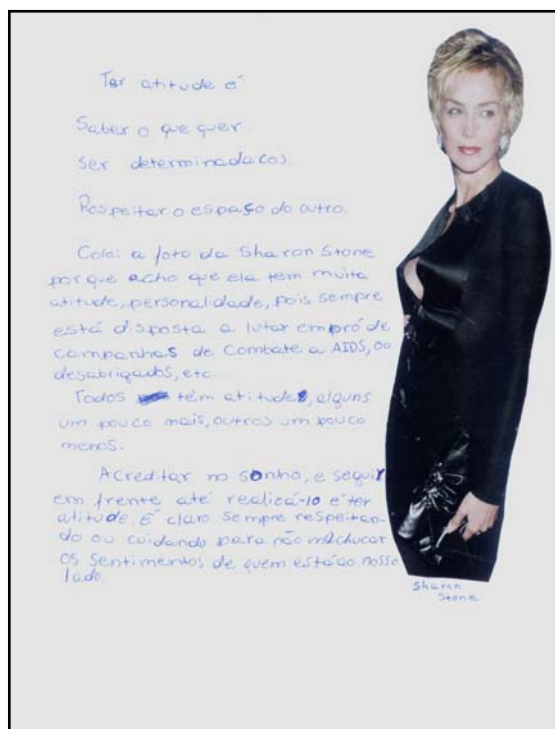 Ter atitude é
Saber o que quer.
Ser determinada cos.
Respeitar o espaço do outro.
Colei a foto da Sharon Stone
por que acho que ela têm muita
atitude, personalidade, pois sempre
está disposta a lutar em pró de
campanhas de combate a AIDS, ao
desabrigados, etc...
Todos têm atitude, alguns
um pouco mais, outros um pouco
menos.
Acreditar no sonho, e seguir
em frente até realicá-lo é ter
atitude. É claro sempre respeitan-
do ou cuidando para não machucar
os sentimentos de quem está ao nosso
lado.
Sharon
Stone